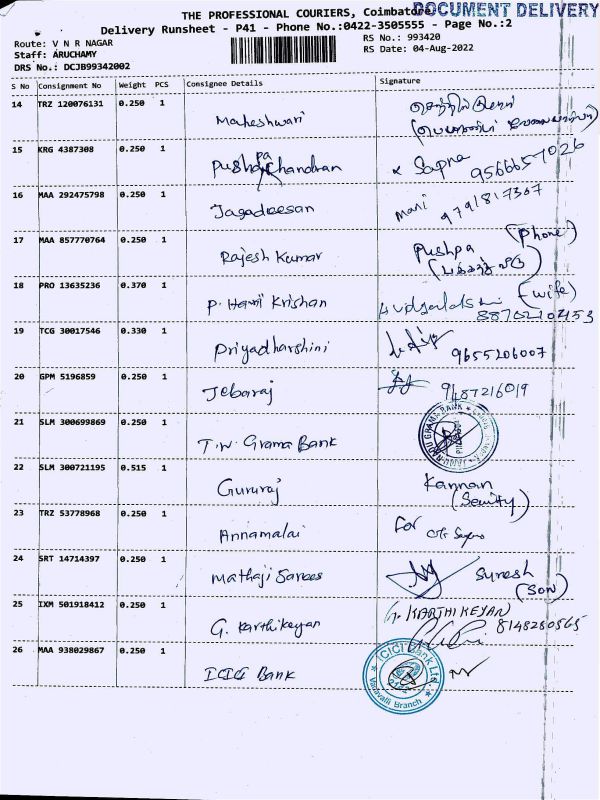 THE PROFESSIONAL COURIERS, Coimbatore
DOCUMENT DELIVERY
Delivery Runsheet - P41 - Phone No.:0422-3505555 - Page No.:2
Route: V N R NAGAR
RS No.: 993420
Staff: ARUCHAMY
RS Date: 04-Aug-2022
DRS No.: DCJB99342002
S No Consignment No Weight PCS Consignee Details Signature
14 TRZ 120076131 0.250 1
Maheshwari
15 KRG 4387308 0.250 1
Pushpa Chandran Sapna 9566657026
16 MAA 292475798 0.250 1
Jagadeesan Mani 9791817307
17 MAA 857770764 0.250 1
Rajesh Kumar Pushpa (Phone)
18 PRO 13635236 0.370 1
P. Hari Krishan (wife)
8870210453
19 TCG 30017546 0.330 1
Priyadharshini 9655206007
20 GPM 5196859 0.250 1
Jebaraj 9487216019
21 SLM 300699869 0.250 1
T.N. Grama Bank
22 SLM 300721195 0.515 1
Gururaj Kannan
23 TRZ 53778968 0.250 1
Annamalai For
24 SRT 14714397 0.250 1
Mathaji Sarees Suresh
(Son)
25 IXM 501918412 0.250 1
G. Karthikeyan G. KARTHIKEYAN
8148280565
26 MAA 938029867 0.250 1
ICICI Bank
ICICI Bank Ltd.
Vadavalli Branch